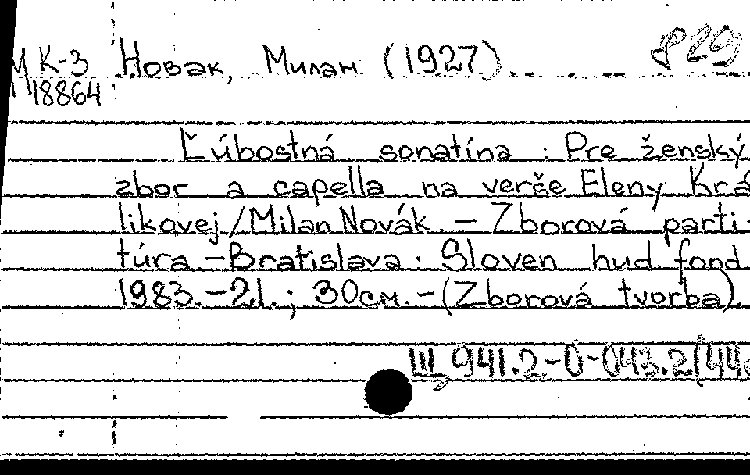 М К-3 Новак, Милан (1927). 829
18864
Ľúbostná sonatína : Pre ženský
zbor a capella na verše Eleny Krá
likovej / Milan Novák. – Zborová parti
túra – Bratislava : Sloven hud fond
1983. – 2 l. ; 30 см. – (Zborová tvorba).
Щ 941.2-0-043.2(44